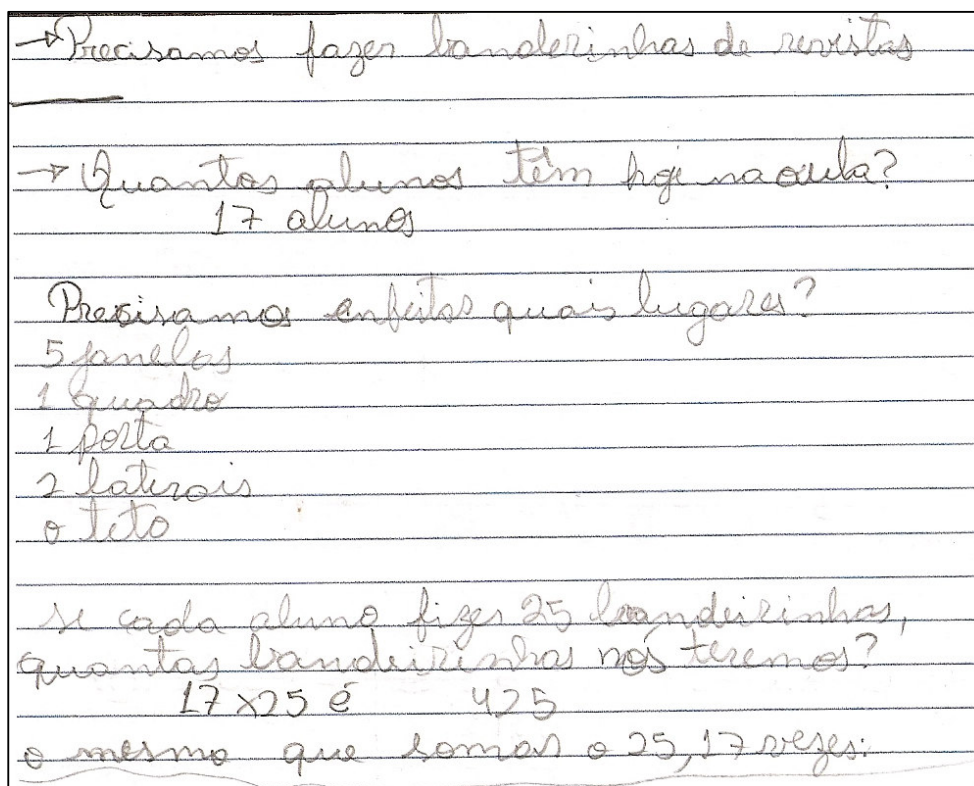 → Precisamos fazer banderinhas de revistas
→ Quantos alunos têm hoje na aula?
17 alunos
Precisamos enfeitar quais lugares?
5 janelas
1 quadro
1 porta
2 laterais
o teto
se cada aluno fizer 25 bandeirinhas,
quantas bandeirinhas nós teremos?
17 x 25 é 425
o mesmo que somar o 25, 17 vezes.